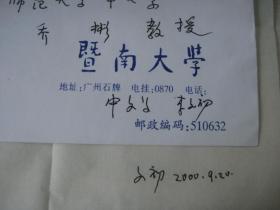 师范大学中文系
乔 彬 教授
暨南大學
地址:广州石牌 电挂:0870 电话:
中文系 李文初
邮政编码:510632
文初 2000.9.20.